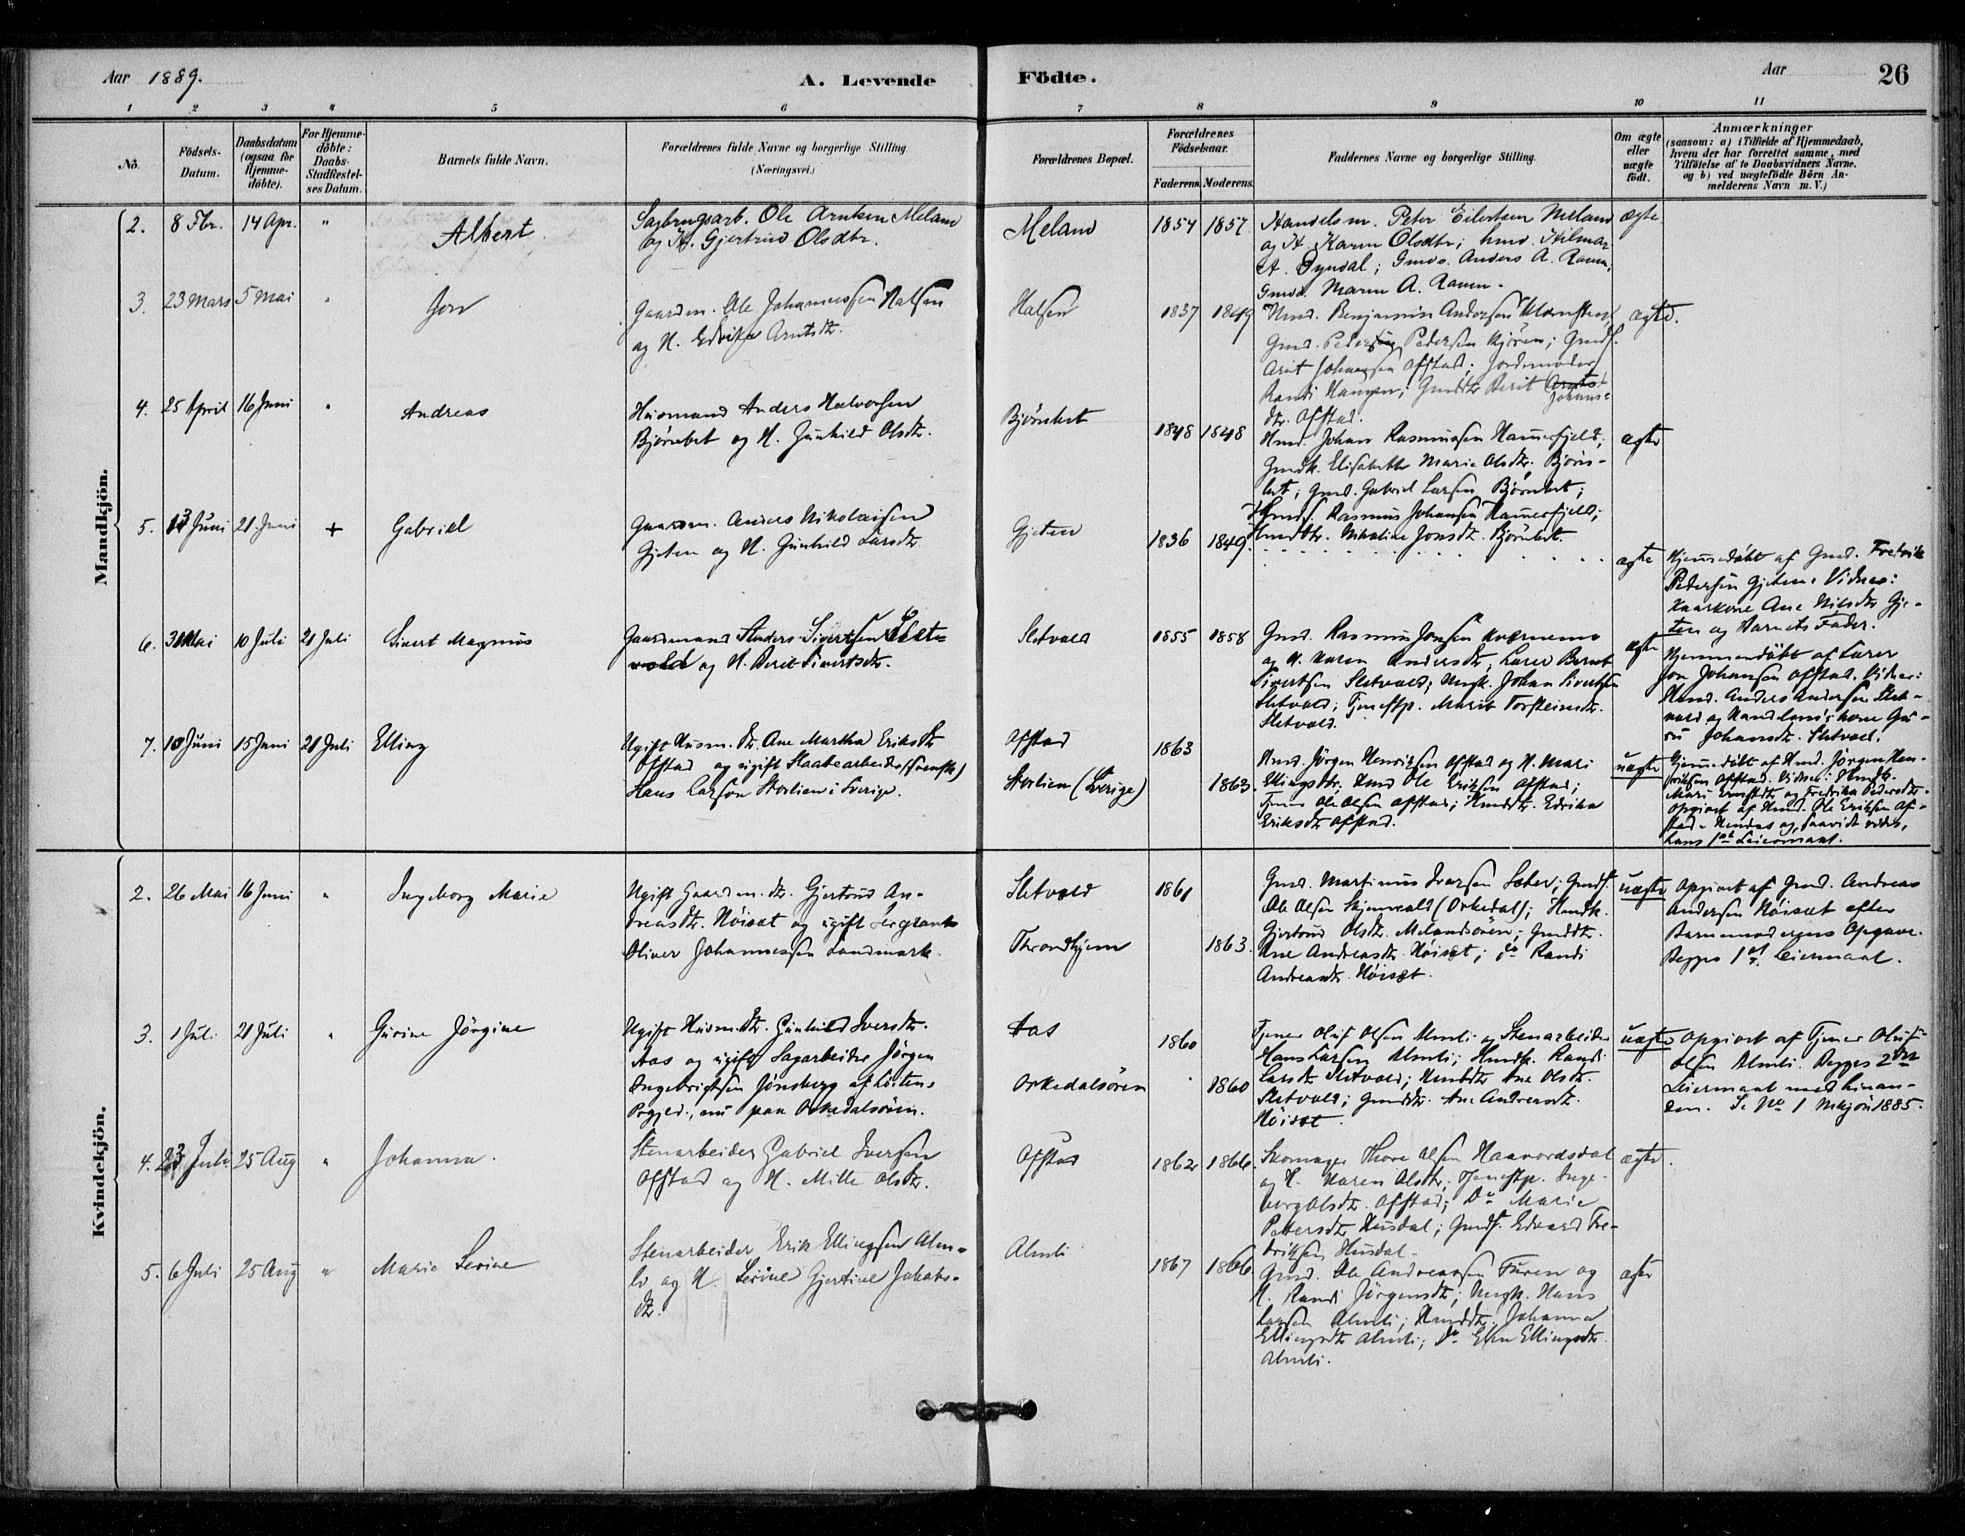 Aar 1889.
A. Levende Födte.
Aar
26
1 2 3 4 5 6 7 8 9 10 11
No.
Födsels-
Datum.
Daabsdatum
(ogsaa for
Hjemme-
döbte).
For Hjemme-
döbte:
Daabs-
Stadfæstel-
ses Datum.
Barnets fulde Navn.
Forældrenes fulde Navne og borgerlige Stilling.
(Næringsvei.)
Forældrenes Bopæl.
Forældrenes
Födselsaar.
Faderens. Moderens.
Faddernes Navne og borgerlige Stilling.
Om ægte
eller
uægte
födt.
Anmærkninger
(saasom: a) i Tilfælde af Hjemmedaab,
hvem der har forrettet samme, med
Tilföielse af to Daabsvidners Navne.
og b) ved uægtefödte Börn An-
melderens Navn m. V.)
Mandkjön.
2. 8 Fbr. 14 Apr. "
Albert
Sagbrugsarb. Ole Arntsen Meland
og H. Gjertrud Olsdtr.
Meland
1854 1857.
Handelsm. Peter Eilertsen Meland
og H. Karen Olsdtr; hmd. Hilmar
A. ; Gmd. Anders A. Ramn;
Gmd. Maren A. Ramn.
ægte
3. 23 Mars 5 Mai "
Jon
Gaardm. Ole Johannessen Halsen
og H. Edvika Arntsdtr.
Halsen
1837 1849
Hmd. Benjamin Andersen
Gmd. Peder Pedersen Kjören; Gmds.
Arit Johansen Afstad; Jordemoder
Randi Haugen; Gmddtr Berit Arnts-
Johans-
dtr. Afstad.
ægte.
4. 25 April 16 Juni "
Andreas
Husmand Anders Halvorsen
Bjørnbet og H. Gunhild Olsdtr.
Bjørnbet
1848 1848
Hmd. Johan Rasmussen Hamerfjeld;
Gmdk. Elisabeth Marie Olsdtr. Bjørn-
bet; Gmd. Gabriel Larsen Bjørnbet;
Hmds. Rasmus Johansen Hamerfjeld;
Hmddtr. Nikoline Jonsdtr. Bjørnbet
ægte
5. 13 Juni 21 Juni +
Gabriel
Gaardm. Anders Nikolaisen
Gjeten og H. Gunhild Larsdtr.
Gjeten
1836 1849.
ægte
Hjemmedøbt af Gmd. Fredrik
Pedersen Gjeten. Vidner:
Kaarkone Ane Nilsdtr Gje-
ten og Barnets Fader.
6. 31 Mai 10 Juli 21 Juli
Sivert Magnus
Gaardmand Anders Sivertsen Slet-
vold og H. Berit Sivertsdtr.
Sletvold
1855 1858
Gmd. Rasmus Jonsen Kværnmo
og H. Karen Andersdtr; Lærer Bernt
Sivertsen Sletvold; Ungk. Johan Sivertsen
Sletvold; Tjenestp. Marit Torsteinsdtr.
Sletvold.
ægte
Hjemmedøbt af Lærer
Jon Johansen Afstad. Vidner:
Hmd. Anders Andersen Slet-
vold og Handelsm's kone Gu-
ru Johansdtr. Sletvold.
7. 10 Juni 15 Juni 21 Juli
Elling
Ugift Husm. dtr. Ane Martha Eriksdtr
Afstad og ugift Slaabearbeider (svensk)
Hans Larson Storlien i Sverige.
Afstad
Storlien (Sverige)
1863
1863.
Hmd. Jörgen Henriksen Afstad og H. Mari
Ellingsdtr; Hmd Ole Eriksen Afstad;
Tjener Ole Olsen Afstad; Hmddtr. Edvika
Eriksdtr Afstad.
uægte
Hjemmedøbt af Hmd. Jörgen Hen-
riksen Afstad. Vidner: Hmdk.
Mari Ernstdtr og Fredrika Pedersdtr.
Opgivet af Hmd. Ole Eriksen Af-
stad. Hendes og, saavidt vides,
hans 1ste Leiermaal.
Kvindekjön.
2. 26 Mai 16 Juni "
Ingeborg Marie
Ugift Gaardm. dtr. Gjertrud An-
dreasdtr. Höisæt og ugift Sergeant
Oliver Johannessen Landmark.
Sletvold
Throndhjem
1861
1863.
Gmd. Martinus Ivarsen Sæter; Gmds.
Ole Olsen Skjenvald (Orkedal); Hmdk.
Gjertrud Olsdtr. Melandsören; Gmddtr.
Ane Andreasdtr. Höisæt; do Randi
Andreasdtr. Höisæt.
uægte
Opgivet af Gmd. Andreas
Andersen Höisæt efter
Barnemoderens Opgave.
Begges 1ste Leiermaal.
3. 1 Juli. 21 Juli "
Gurine Jörgine
Ugift Husm. dtr. Gunhild Iversdtr.
Aas og ugift Sagarbeider Jörgen
Ingebrigtsen Jønsberg af Løtens
Prgjeld., nu paa Orkedalsören.
Aas
Orkedalsören
1860
1860
Tjener Oluf Olsen Almli og Stenarbeider
Hans Larsen Almli; Hmdk. Randi
Larsdtr Sletvold; Hmddtr Ane Olsdtr.
Sletvold; Gmddtr. Ane Andreasdtr.
Höisæt.
uægte
Opgivet af Tjener Oluf
Olsen Almli. Begges 2det
Leiermaal med hinan-
den. Se No 1 Mkjön 1885.
4. 23 Juli 25 Aug "
Johanna.
Stenarbeider Gabriel Iversen
Afstad og H. Mille Olsdtr.
Afstad
1862 1866.
Skomager Thore Olsen Haavordsdal
og H. Karen Olsdtr; Tjenestp. Inge-
borg Olsdtr. Afstad; Do Marie
Pettersdtr Husdal; Gmds. Edvard Fre-
driksen Husdal.
ægte.
5. 6 Juli 25 Aug "
Marie Serine
Stenarbeider Erik Ellingsen Alm-
li og H. Serine Gjertine Johans-
dtr.
Almli
1867 1866.
Gmd. Ole Andreassen Furen og
H. Randi Jörgensdtr; Ungk. Hans
Larsen Almli; Hmddtr. Johanna
Ellingsdtr Almli; do Elen Ellingsdtr.
Almli.
ægte